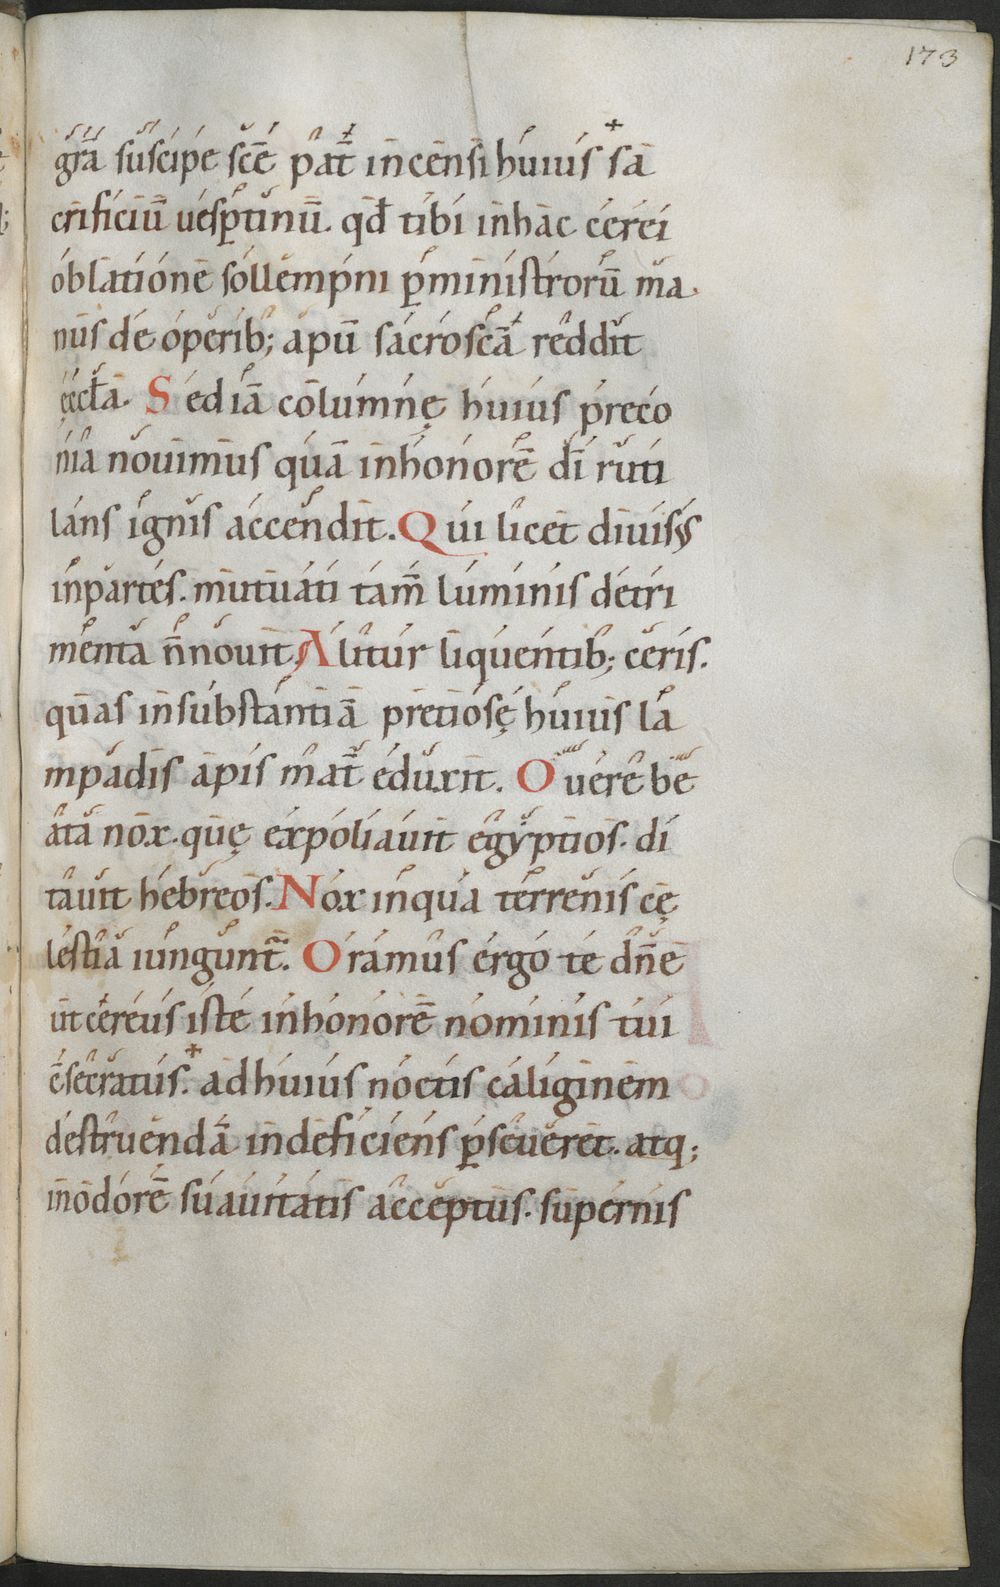 173
gr̄a suscipe sc̄e pat̄ incensi huius sa
crificiū uesp̄tinū. qd̄ tibi inhac cerei
oblatione sollempni p̱ministrorū ma
nus de operib; apū sacroscā reddit
ęccła. Sed iā columnę huius preco
nia nouimus quā inhonorē dī ruti
lans ignis accendit. Qui licet diuisus
inpartes. mutuati tam̄ luminis detri
menta n̄nouit Alitur liquentib; ceris.
quas insubstantiā pretiosę huius la
mpadis apis mat̄ eduxit. O uere be
ata nox. quę expoliauit egyptios. di
tauit hebreos. Nox inqua terrenis cę
lestia iungunt᷑. Oramus ergo te dn̄e
ut cereus iste inhonorē nominis tui
c̄secratus. ad huius noctis caliginem
destruendā indeficiens p̱seueret. atq;
inodorē suauitatis acceptus. supernis